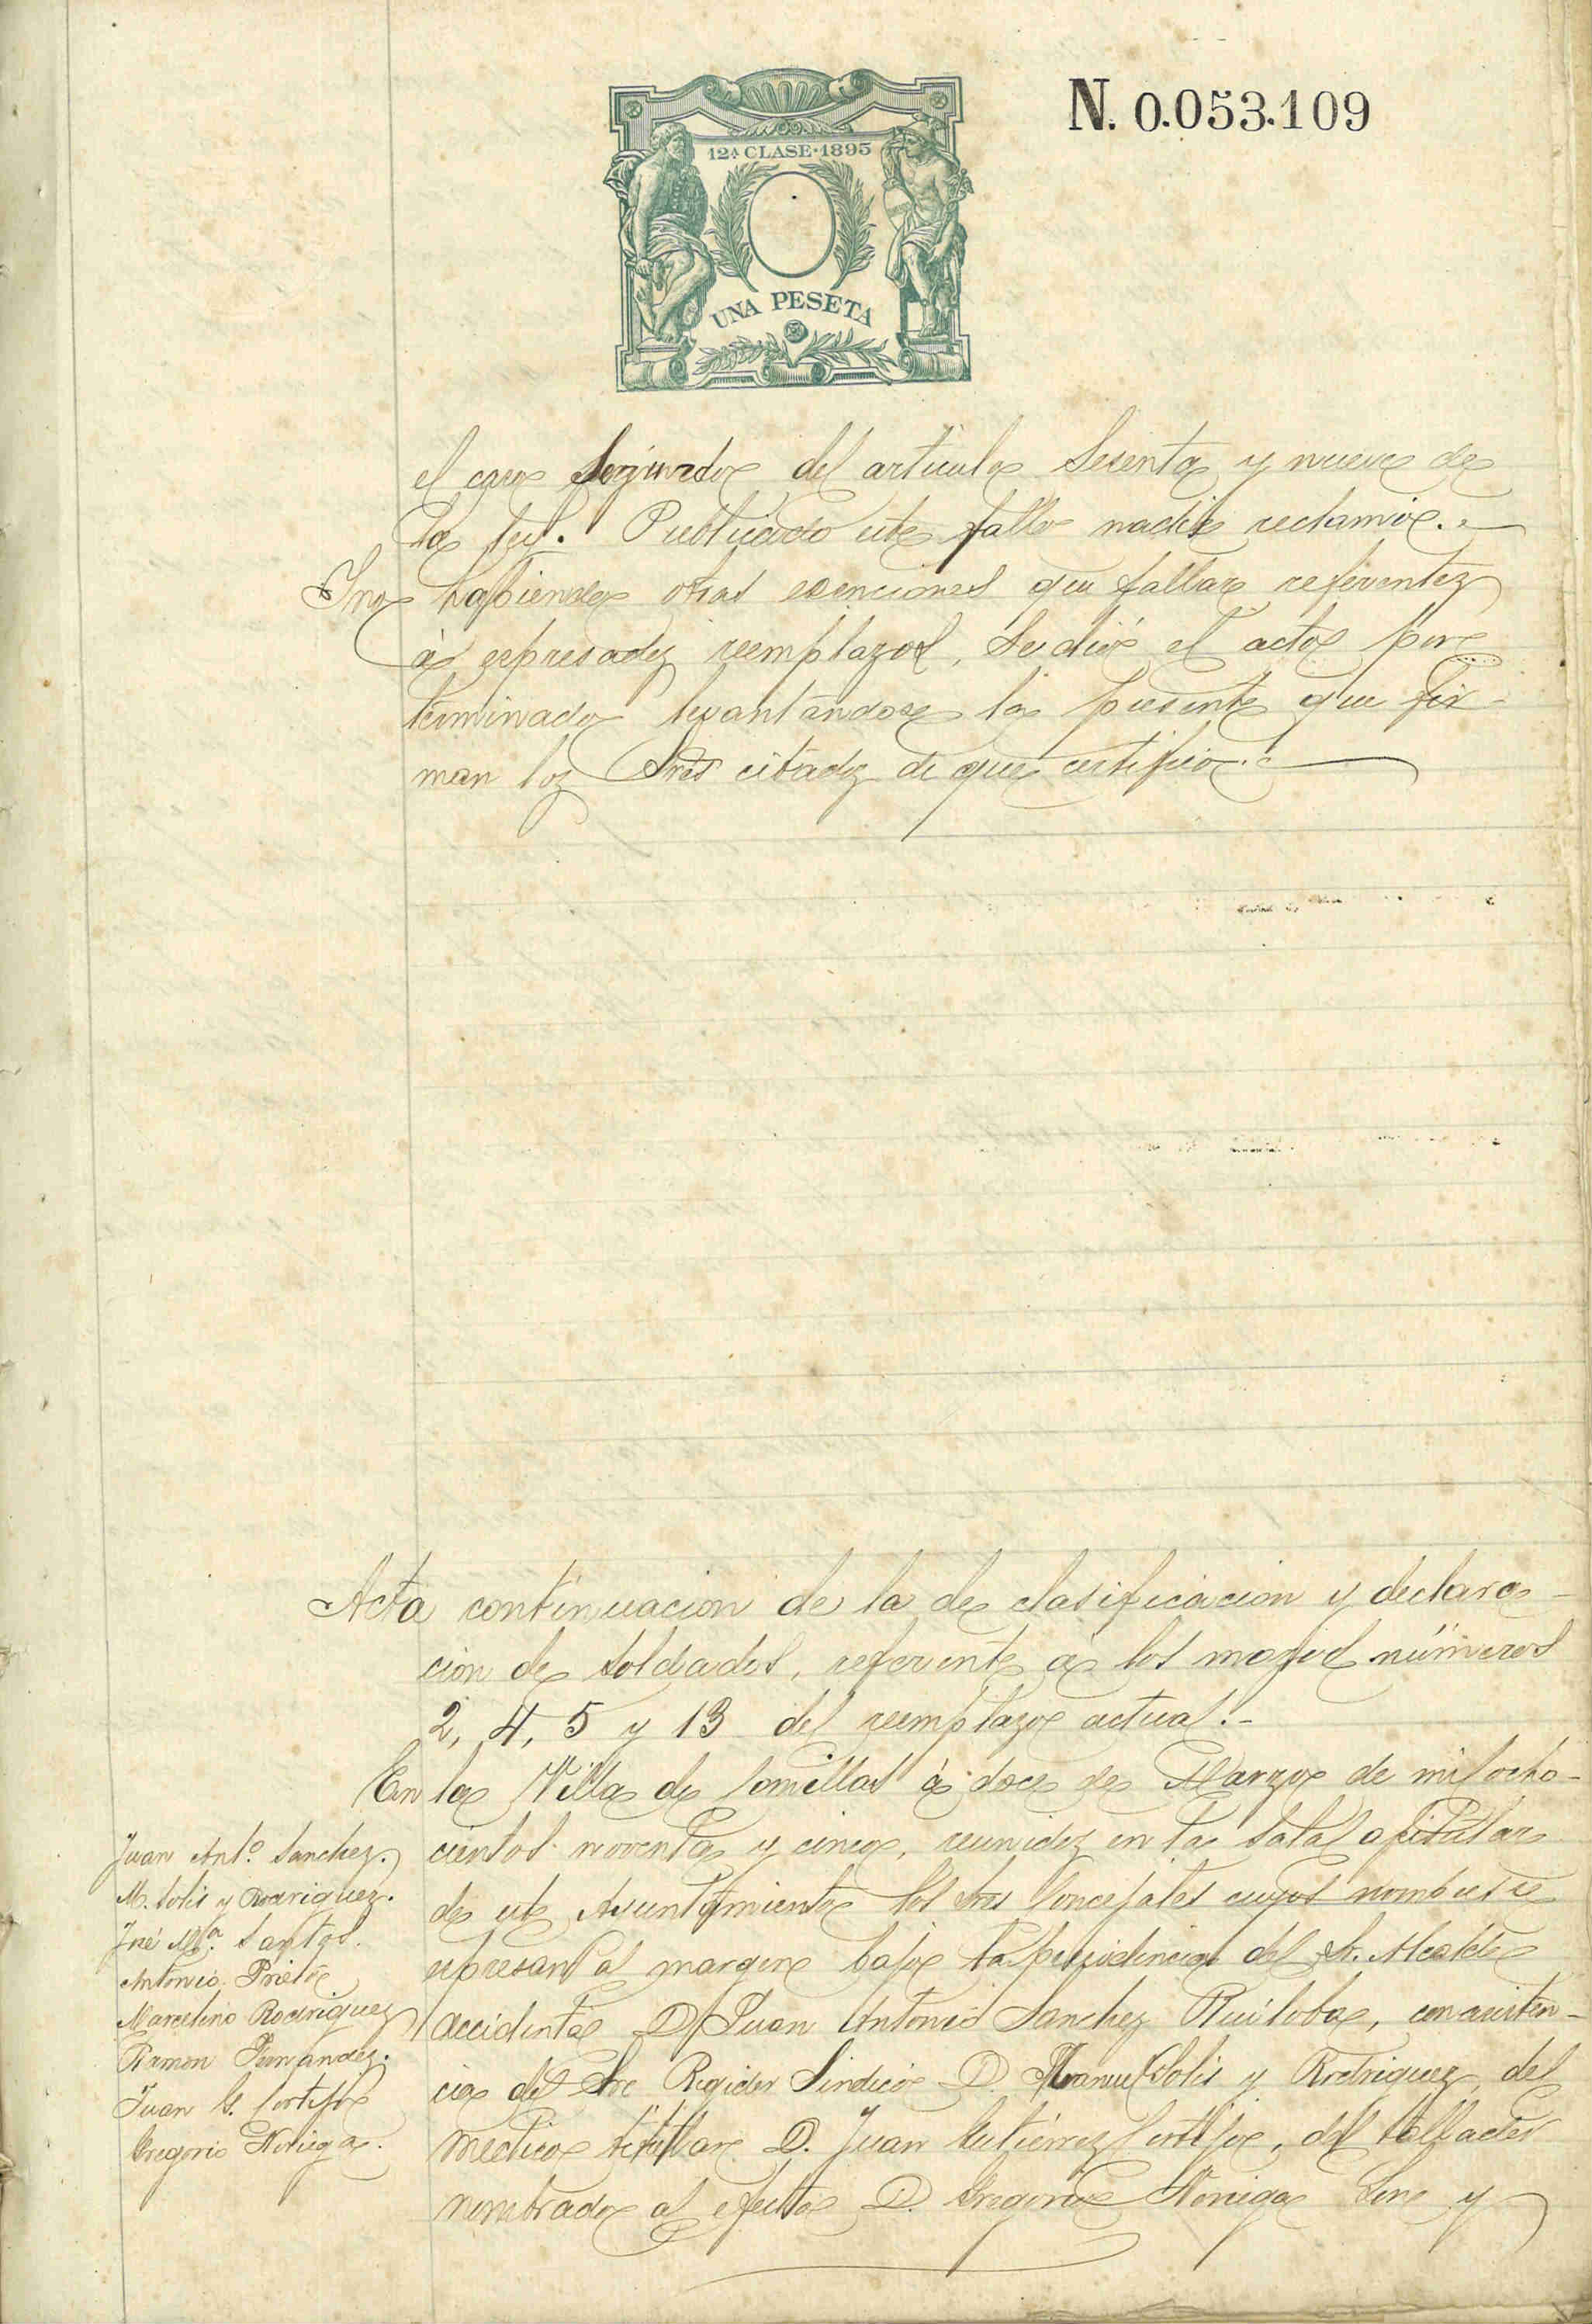 N. 0.053.109
12ª CLASE·1895
UNA PESETA
el caso segundo del articulo sesenta y nueve de
la ley. Publicado este fallo nadie reclamó.
Y no habiendo otras exenciones que fallar referentes
á expresados reemplazos, se dió el acto por
terminado levantándose la presente que fir-
man los Sres citados de que certifico.
Acta continuacion de la de clasificacion y declara-
cion de soldados, referente á los mozos números
2, 4, 5 y 13 del reemplazo actual.-
En la Villa de Comillas á doce de Marzo de mil ocho-
cientos noventa y cinco, reunidos en la sala capitular
de este Ayuntamiento los Sres Concejales cuyos nombres se
espresan al margen bajo la presidencia del Sr. Alcalde
accidental D. Juan Antonio Sanchez Ruiloba, con asisten-
cia del Sr Regidor Sindico D. Manuel Solis y Rodriguez, del
medico titular D. Juan Gutiérrez Cortijo, del tallador
nombrado al efecto D. Gregorio Noriega y
Juan Antº. Sanchez.
M. Solis y Rodriguez.
José Mª. Santos.
Antonio Prieto
Marcelino Rodriguez
Ramon Fernandez.
Juan G. Cortijo
Gregorio Noriega.